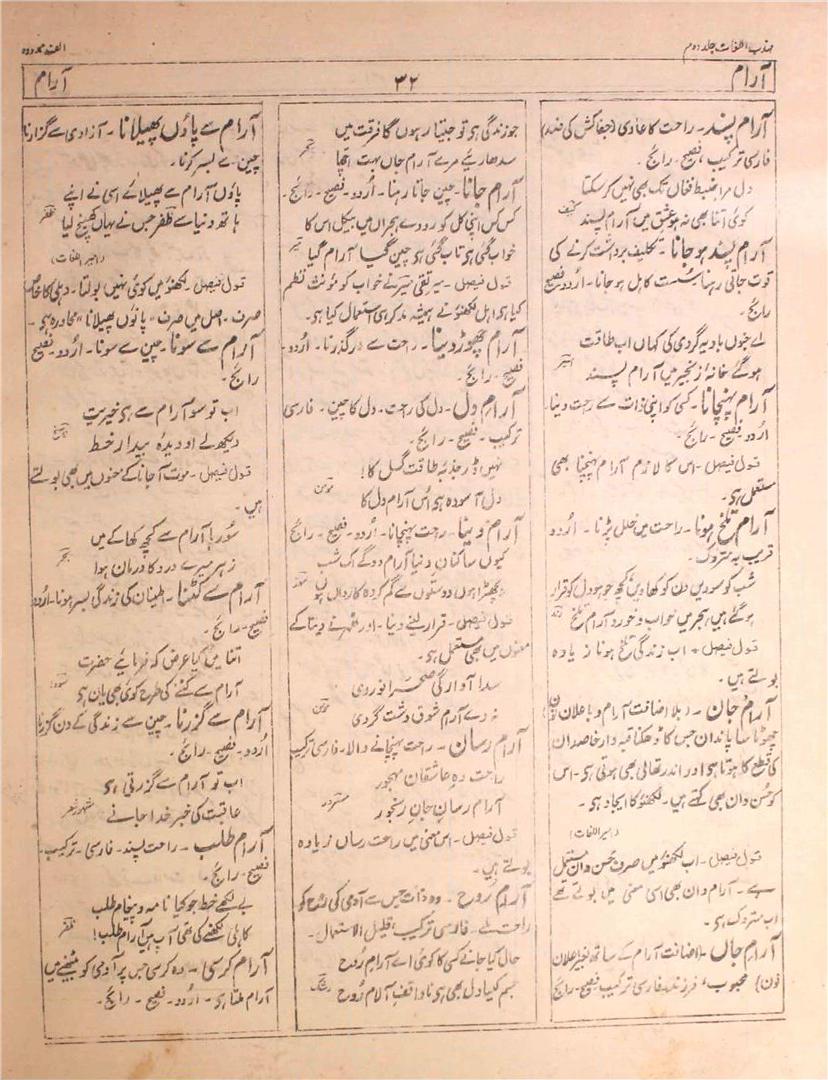 مہذب اللغات جلد دوم
الف ممدودہ
آرام
۳۲
آرام
آرام پسند۔ راحت کا عادی (جفاکش کی ضد)
فارسی ترکیب، فصیح۔ رائج۔
دل مرا ضبط فغاں تک بھی نہیں کر سکتا
کوئی اتنا بھی نہ ہو عشق میں آرام پسند
آرام پسند ہو جانا۔ تکلیف برداشت کرنے کی
قوت جاتی رہنا سست کاہل ہو جانا۔ اُردو فصیح
رائج۔
اے جنوں بادیہ گردی کی کہاں اب طاقت
ہو گئے خانۂ زنجیر میں آرام پسند
آرام پہنچانا۔ کسی کو اپنی ذات سے راحت دینا۔
اُردو۔ فصیح۔ رائج۔
قول فیصل۔ اس کا لازم آرام پہنچنا بھی
مستعمل ہے۔
آرام تلخ ہونا۔ راحت میں خلل پڑنا۔ اُردو
قریب بہ متروک۔
شب کو سو دیں دن کو کھاویں کچھ جو ہو دل کو قرار
ہو گئے ہیں ہجر میں خواب و خور و آرام تلخ
قول فیصل۔ اب زندگی تلخ ہونا زیادہ
بولتے ہیں۔
آرام جان۔ (بلا اضافت آرام و با علان نون)
چھوٹا سا پاندان جس کا ڈھکنا قبہ دار خاصدان
کی قطع کا ہوتا ہے اور اندر تھالی بھی ہوتی ہے۔ اس
کو حسن دان بھی کہتے ہیں۔ لکھنؤ کا ایجاد ہے۔
(امیر اللغات)
قول فیصل۔ اب لکھنؤ میں صرف حسن دان مستعمل
ہے۔ آرام دان بھی اسی معنی میں بولتے تھے
اب متروک ہے۔
آرامِ جاں۔ (اضافت آرام کے ساتھ بغیر اعلان
نون) محبوب، فرزند۔ فارسی ترکیب فصیح۔ رائج
جو زندگی ہے تو جیتا رہوں گا فرقت میں
سدھاریئے مرے آرام جاں بہت اچھا
آرام جانا۔ چین جاتا رہنا۔ اُردو۔ فصیح۔ رائج۔
کس کس اپنی کل کو رووے ہجراں میں بیکل اس کا
خواب گئی ہے تاب گئی ہے چین گیا آرام گیا
قول فیصل۔ میر تقی میر نے خواب کو مونث نظم
کیا ہے اہل لکھنؤ نے ہمیشہ مذکر ہی استعمال کیا ہے۔
آرام چھوڑ دینا۔ راحت سے درگذرنا۔ اُردو۔
فصیح۔ رائج۔
آرامِ دل۔ دل کی راحت۔ دل کا چین۔ فارسی
ترکیب۔ فصیح۔ رائج۔
نہیں اثر جذبۂ طاقت گسل کا!
دل آسودہ ہے اُس آرام دل کا
مومن
آرام دینا۔ راحت پہنچانا۔ اُردو۔ فصیح۔ رائج
کیوں ساکنان دنیا آرام دو گے اک شب
بچھڑا ہوں دوستوں سے گم کردہ کارواں ہوں
قول فیصل۔ قرار لینے دینا۔ اور ٹھہرنے دینا کے
معنوں میں بھی مستعمل ہے۔
سدا آوارگی صحرا نوردی
نہ دے آرام شوق دشت گردی
مومن
آرام رساں۔ راحت پہنچانے والا۔ فارسی ترکیب
راحت دہِ عاشقان مہجور
آرام رسانِ جانِ رنجور
قول فیصل۔ اس معنی میں راحت رساں زیادہ
بولتے ہیں۔
آرامِ روح۔ وہ ذات جس سے آدمی کی روح کو
راحت ملے۔ فارسی ترکیب قلیل الاستعمال۔
حال کیا جانے کسی کا کوئی اے آرام روح
جسم کیا دل بھی ہے ناواقف آلام روح
رشک
آرام سے پاؤں پھیلانا۔ آزادی سے گزارنا
چین سے بسر کرنا۔
پاؤں آرام سے پھیلائے اسی نے اپنے
ہاتھ دنیا سے ظفر جس نے یہاں کھینچ لیا
ظفر
(امیر اللغات)
قول فیصل۔ لکھنؤ میں کوئی نہیں بولتا۔ دہلی کا خاص
صرف۔ اصل میں صرف "پاؤں پھیلانا" محاورہ ہے۔
آرام سے سونا۔ چین سے سونا۔ اُردو۔ فصیح
رائج۔
اب تو سو آرام سے ہے خیریت
دیکھ لے او دیدۂ بیدار خط
قول فیصل۔ موت آ جانا کے معنوں میں بھی بولتے
ہیں۔
سو رہا آرام سے کچھ کھا کے میں
زہر میرے درد کا درماں ہوا
آرام سے کٹنا۔ اطمینان کی زندگی بسر ہونا۔ اُردو
فصیح۔ رائج۔
اتنا میں کیا عرض کہ فرمائیے حضرت
آرام سے کٹنے کی طرح کوئی بھی یاں ہے
سودا
آرام سے گزرنا۔ چین سے زندگی کے دن گزرنا
اُردو۔ فصیح۔ رائج۔
اب تو آرام سے گزرتی ہے
عاقبت کی خبر خدا جانے
مشہور شعر
آرام طلب۔ راحت پسند۔ فارسی۔ ترکیب۔
فصیح۔ رائج۔
بے لکھے خط جو کیا نامہ و پیغام طلب
کاہلی لکھنے کی تھی آپ ہیں آرام طلب!
ظفر
آرام کرسی۔ وہ کرسی جس پر آدمی کو بیٹھنے میں
آرام ملتا ہے۔ اُردو۔ فصیح۔ رائج۔